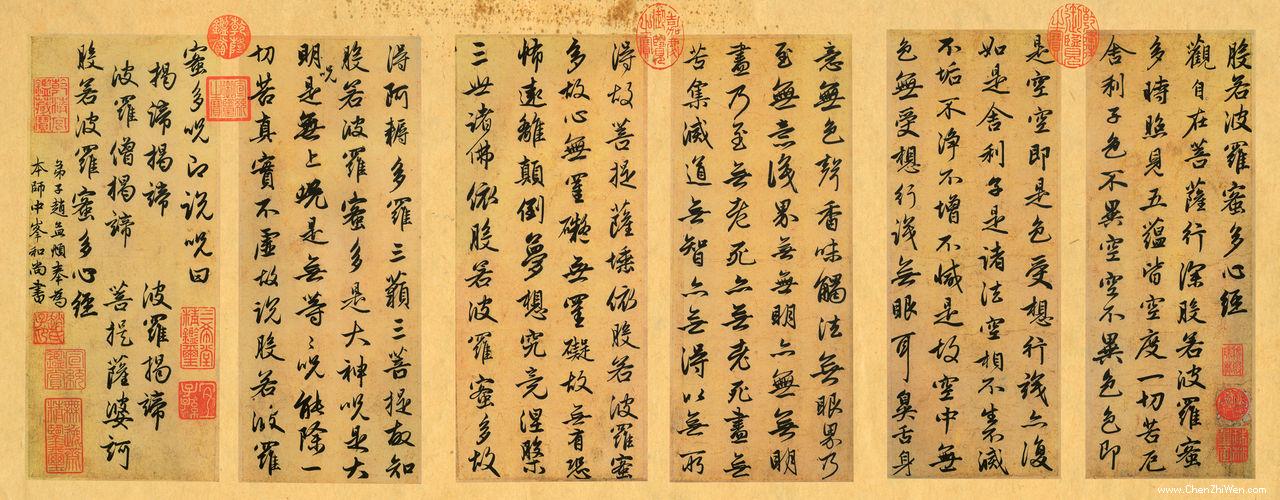 般若波羅蜜多心經
觀自在菩薩行深般若波羅蜜
多時照見五蘊皆空度一切苦厄
舍利子色不異空空不異色色即
是空空即是色受想行識亦復
如是舍利子是諸法空相不生滅
不垢不淨不增不減是故空中無
色無受想行識無眼耳鼻舌身
意無色聲香味觸法無眼界乃
至無意識界無無明亦無無明
盡乃至無老死亦無老死盡無
苦集滅道無智亦無得以無所
得故菩提薩埵依般若波羅蜜
多故心無罣礙無罣礙故無有恐
怖遠離顛倒夢想究竟涅槃
三世諸佛依般若波羅蜜多故
得阿耨多羅三藐三菩提故知
般若波羅蜜多是大神咒是大
明咒是無上咒是無等〻咒能除一
切苦真實不虛故說般若波羅
蜜多咒即說咒曰
揭諦揭諦 波羅揭諦
波羅僧揭諦 菩提薩婆訶
般若波羅蜜多心經
弟子趙孟頫奉為
本師中峰和尚書
三希堂精鑑璽
宜子孫
www.ChenZhiWen.com